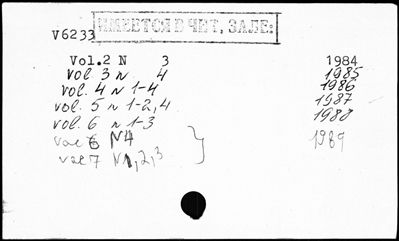 ИМЕЕТСЯ В ЧИТ, ЗАЛЕ:
V6233
Vol.2 N 3 1984
vol. 3 N 4 1985
vol. 4 N 1-4 1986
vol. 5 N 1-2,4 1987
vol. 6 N 1-3 1988
vol 6 N4
vol 7 N1,2,3 1989